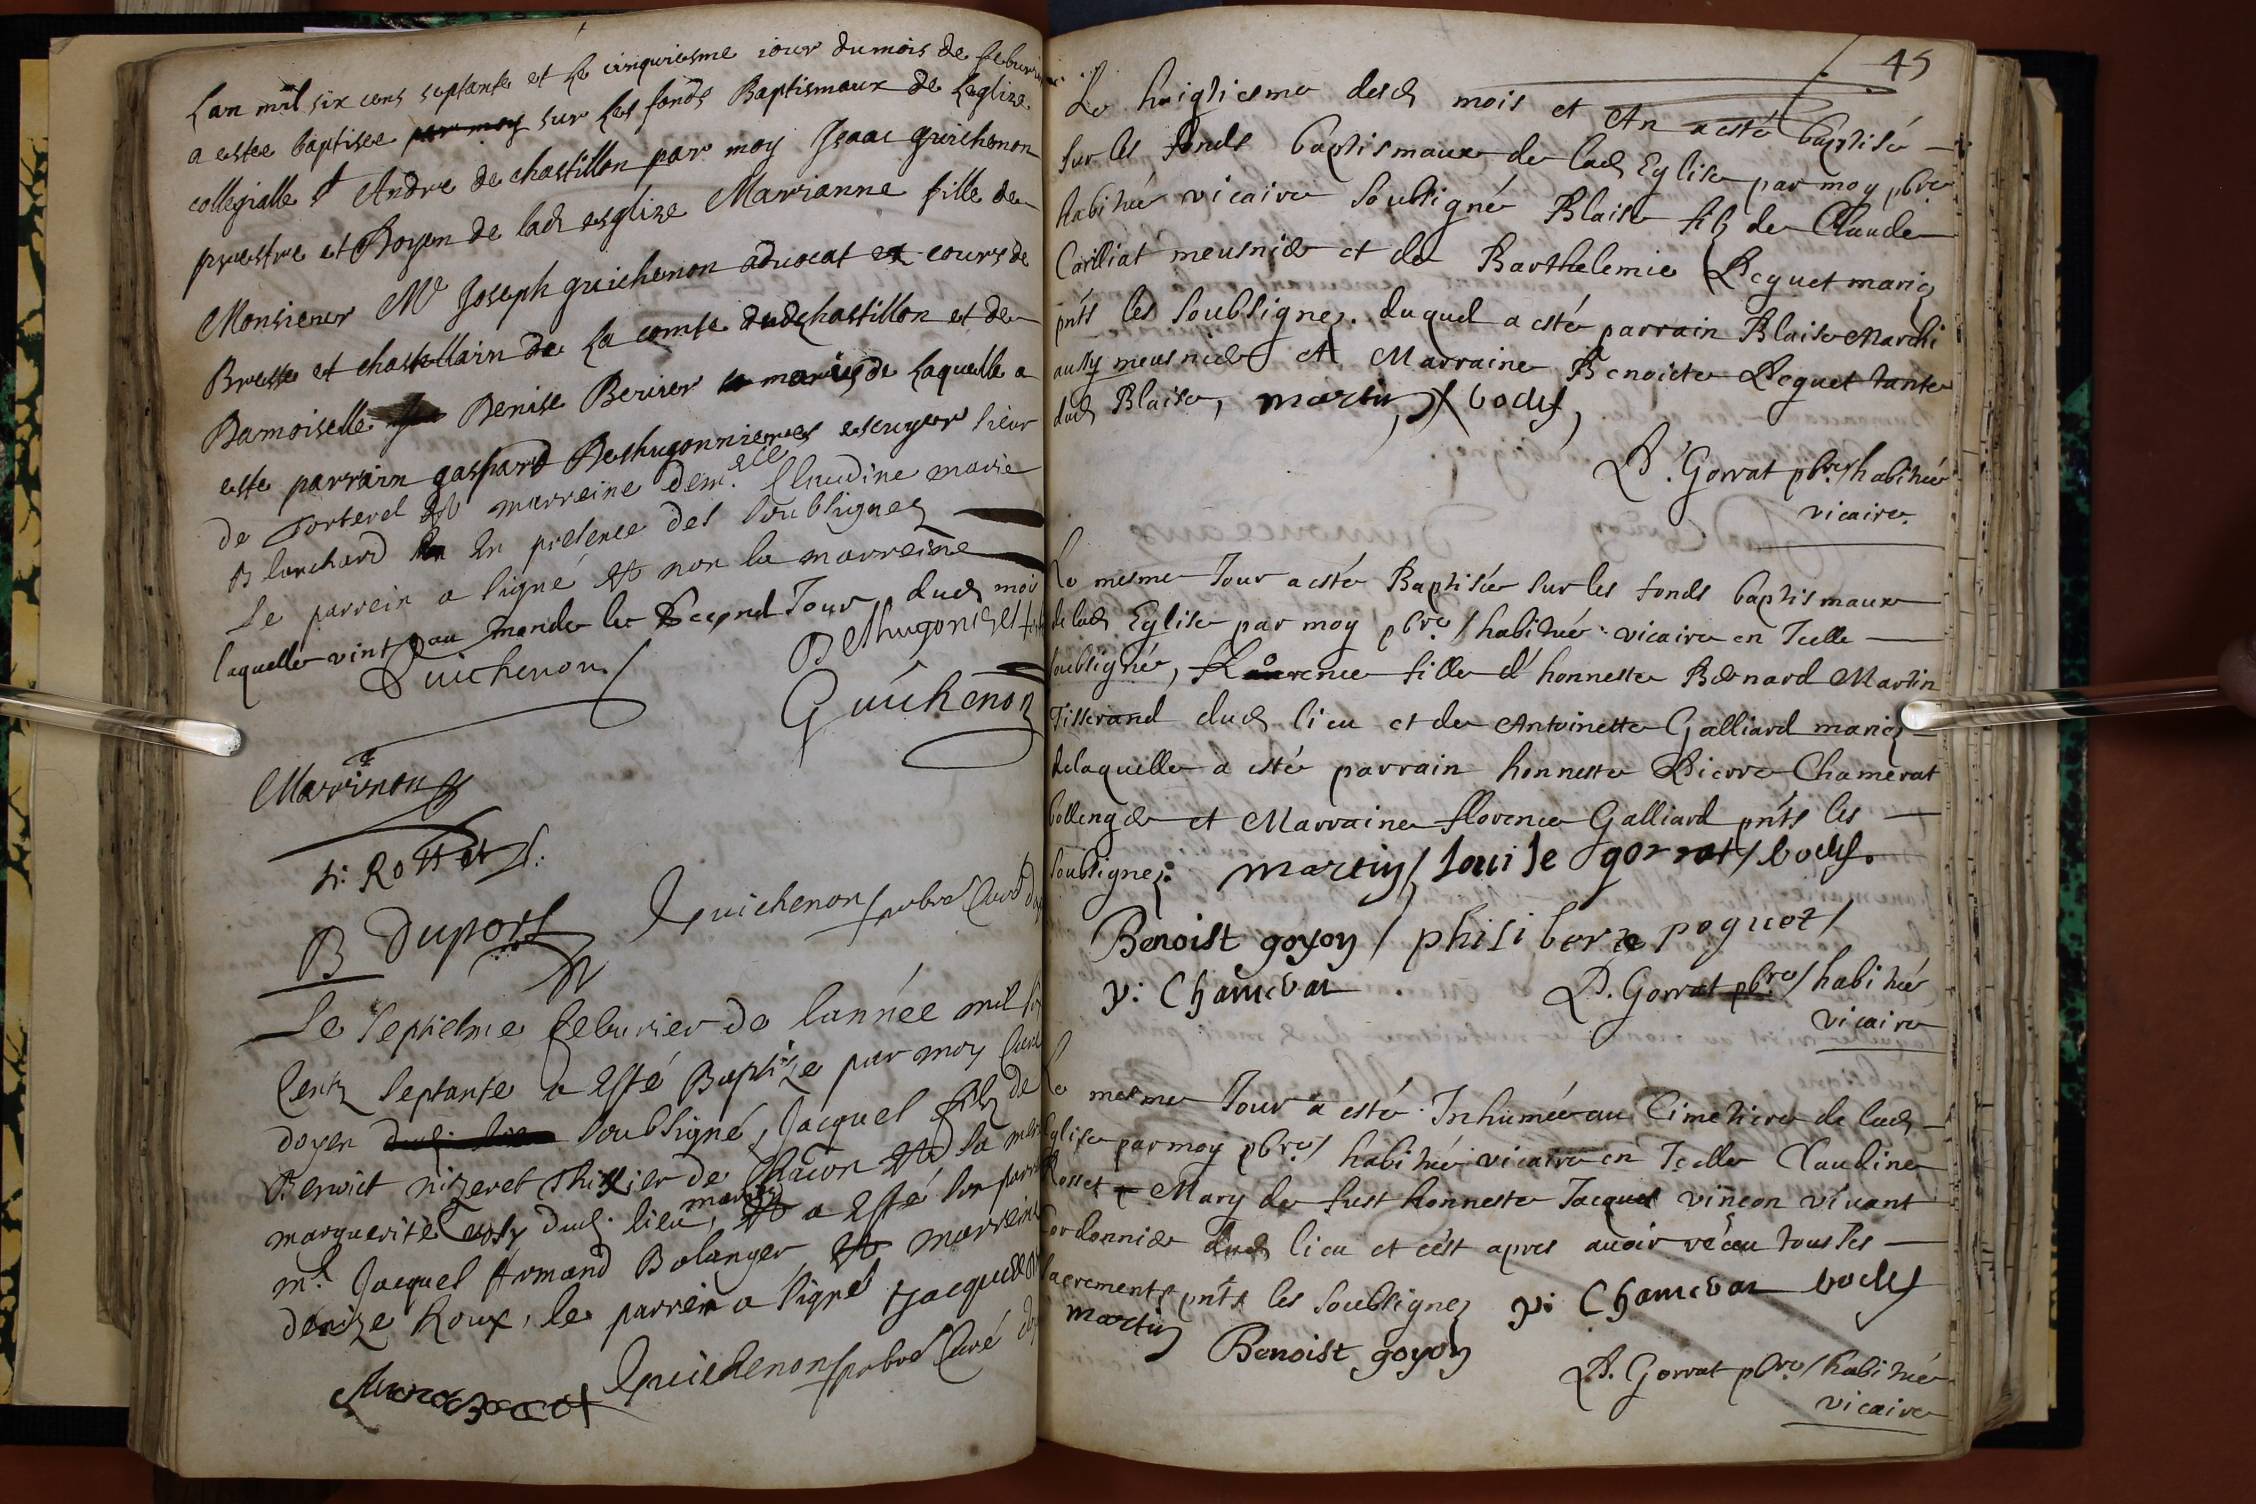 Lan mil six cens septante et le cinquiesme iour du mois de feburier
a estee baptisee par moy sur les fonds Baptismaux de Leglize
collegialle st Andre de chastillon par moy Isaac guichenon
prestre et Doyen de lad esglize Marianne fille de
Monsieur Mr Joseph guichenon aduocat et cours de
Bresse et chastellain de La comte dud chastillon et de
Damoiselle Denise Berier mariés de Laquelle a
este parrain gaspard Deshugonnieres escuyer sieur
de Torterel et marreine demelle Claudine marie
Blanchard En presence des soubsignez
Le parrein a signé et non la marreine
laquelle vint au monde le second Jour dud mois
Guichenon
Deshugonieres
Guichenon
Marrinon
Rottet
B Duport
Guichenon pbre Curé
Le septiesme feburier de lannée mil six
Centz septante a Esté Baptize par moy Curé
doyen soubsigné, Jacques filz de
Benoict nizeret thissier de Chacon et sa
marguerite Cusy dud. lieu, mariez a Esté son parrein
mr. Jacques Armand Bolanger, et marreine
denize Roux, le parrein a signé
Guichenon pbre Curé
45
Le huigtiesme desd mois et An a esté baptisé
sur les fonds baptismaux de lad Eglise par moy pbre
habitué vicaire soubsigné Blaise filz de Claude
Carilliat meusnier et de Barthelemie Pequet mariez
pnts les soubsignez. duquel a esté parrain Blaise Marchi
aussy meusnier et Marraine Benoicte Pequet tante
dud Blaise, martin / bochs,
P. Gorrat pbre / habitué
vicaire
Le mesme Jour a esté Baptisée sur les fonds baptismaux
de lad Eglise par moy pbre / habitué vicaire en Icelle
soubsigné, Florence fille d'honneste Bernard Martin
Tisserand dud lieu et de Antoinette Galliard mariez
de laquelle a esté parrain honneste Pierre Chamerat
bollenger et Marraine florence Galliard pnts les
soubsignez: martin / Louise gorrat / bochs.
Benoist goyon / philiberte peguet /
p: Chamerat
P. Gorrat pbre / habitué
vicaire
Le mesme Jour a esté Inhumée au Cimetiere de lad
Eglise par moy pbre / habitué vicaire en Icelle Claudine
Rosset Mary de fust honneste Jacques vinçon vivant
Cordonnier dud lieu et c'est apres auoir réceu tous les
sacrements pnts les soubsignez p: Chamerat bochs
martin Benoist goyon
P. Gorrat pbre / habitué
vicaire